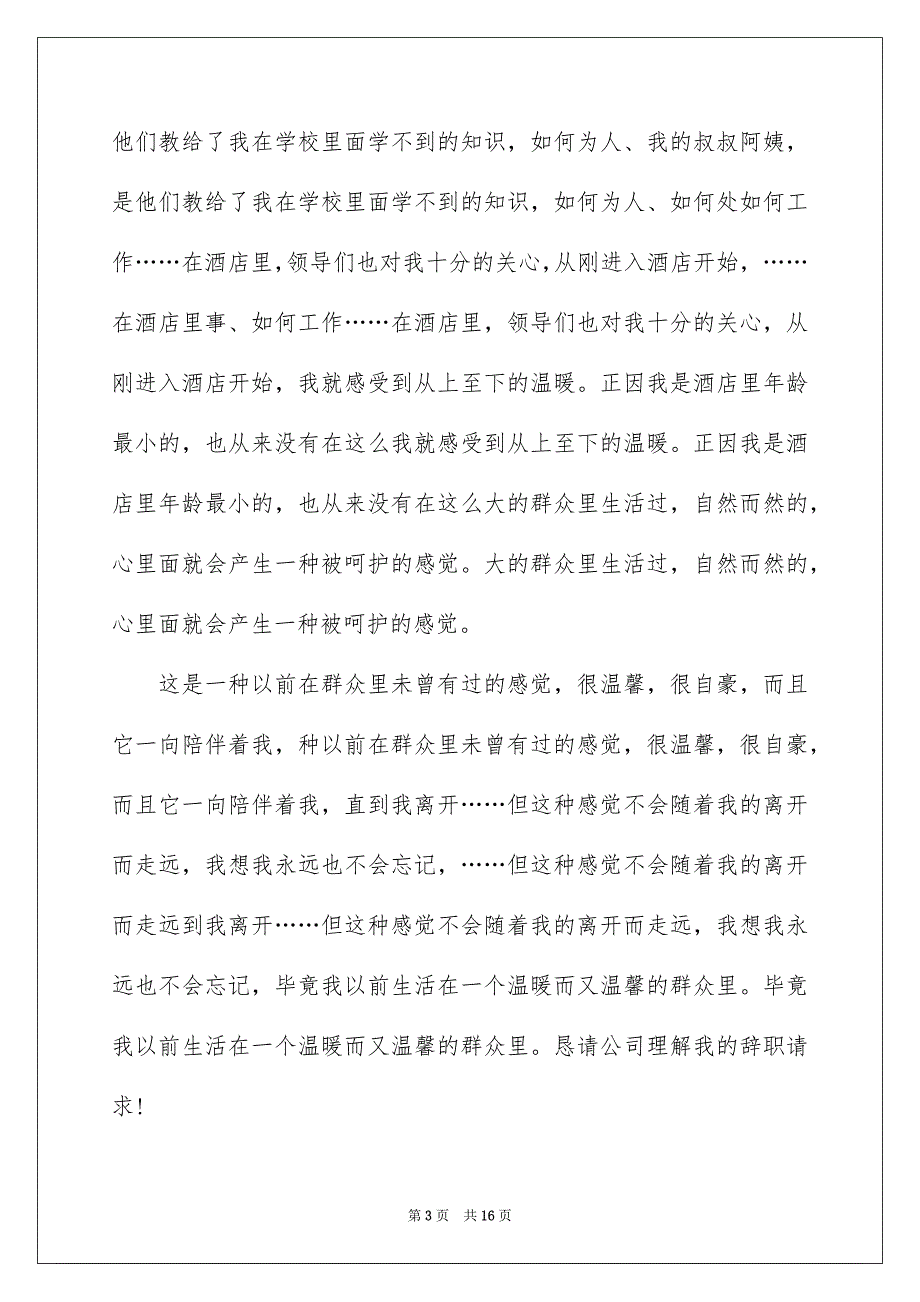 他们教给了我在学校里面学不到的知识，如何为人、我的叔叔阿姨，
是他们教给了我在学校里面学不到的知识，如何为人、如何处如何工
作……在酒店里，领导们也对我十分的关心，从刚进入酒店开始，……
在酒店里事、如何工作……在酒店里，领导们也对我十分的关心，从
刚进入酒店开始，我就感受到从上至下的温暖。正因我是酒店里年龄
最小的，也从来没有在这么我就感受到从上至下的温暖。正因我是酒
店里年龄最小的，也从来没有在这么大的群众里生活过，自然而然的，
心里面就会产生一种被呵护的感觉。大的群众里生活过，自然而然的，
心里面就会产生一种被呵护的感觉。
这是一种以前在群众里未曾有过的感觉，很温馨，很自豪，而且
它一向陪伴着我，种以前在群众里未曾有过的感觉，很温馨，很自豪，
而且它一向陪伴着我，直到我离开……但这种感觉不会随着我的离开
而走远，我想我永远也不会忘记，……但这种感觉不会随着我的离开
而走远到我离开……但这种感觉不会随着我的离开而走远，我想我永
远也不会忘记，毕竟我以前生活在一个温暖而又温馨的群众里。毕竟
我以前生活在一个温暖而又温馨的群众里。恳请公司理解我的辞职请
求!
第 3 页 共 16 页